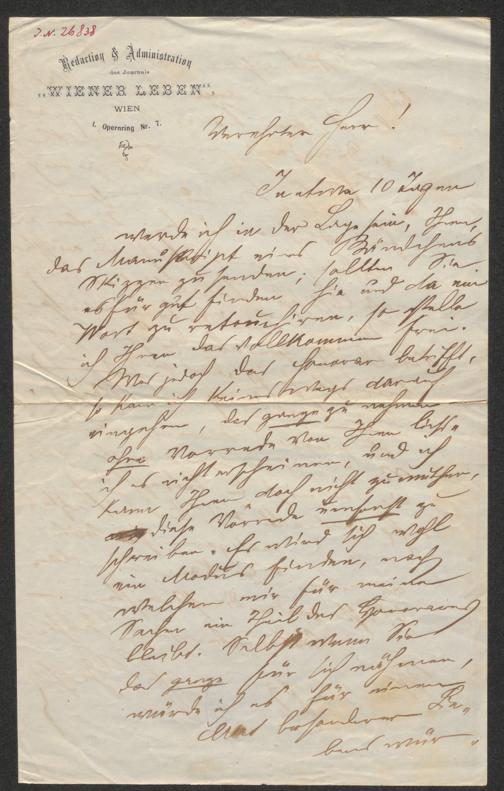 J.N. 26838
Redaction & Administration
des Journals
„WIENER LEBEN“,
WIEN
I. Opernring Nr. 7.
Verehrter Herr!
In etwa 10 Tagen
werde ich in der Lage sein, Ihnen,
das Manuskript eines Bändchens
Skizzen zu senden; sollten Sie
es für gut finden hie und da ein
Wort zu retouchiren, so stelle
ich Ihnen das vollkommen frei.
Was jedoch das Honorar betrifft,
so kann ich keineswegs darauf
eingehen, das ganze zu nehmen
ohne Vorrede von Ihnen ließe
ich es nicht erscheinen, und ich
kann Ihnen doch nicht zumuthen,
diese Vorrede umsonst zu
schreiben. Es wird sich wohl
ein Modus finden, nach
welchem mir für meine
Sachen ein Theil des Honorares
bleibt. Selbst wenn Sie
das ganze für sich nähmen,
würde ich es für einen
besonderer Lie„
bens wür„